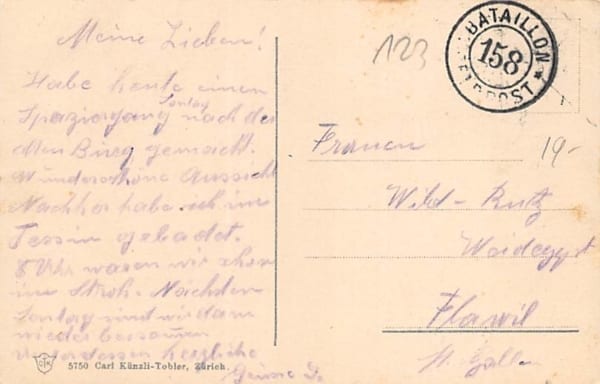 Meine Lieben!
Habe heute einen
Sontag
Spaziergang nach der
alten Burg gemacht.
Wunderschöne Aussicht
Nachher habe ich im
Tessin gebadet.
8 Uhr waren wir schon
im Stroh. Nächsten
Sontag sind wir dann
wieder beisammen
herzliche
Grüsse
5750 Carl Künzli-Tobler, Zürich.
123
BATAILLON
158
FELDPOST *
19-
Frauen
Wild-Rutz
Flawil
St. Gallen